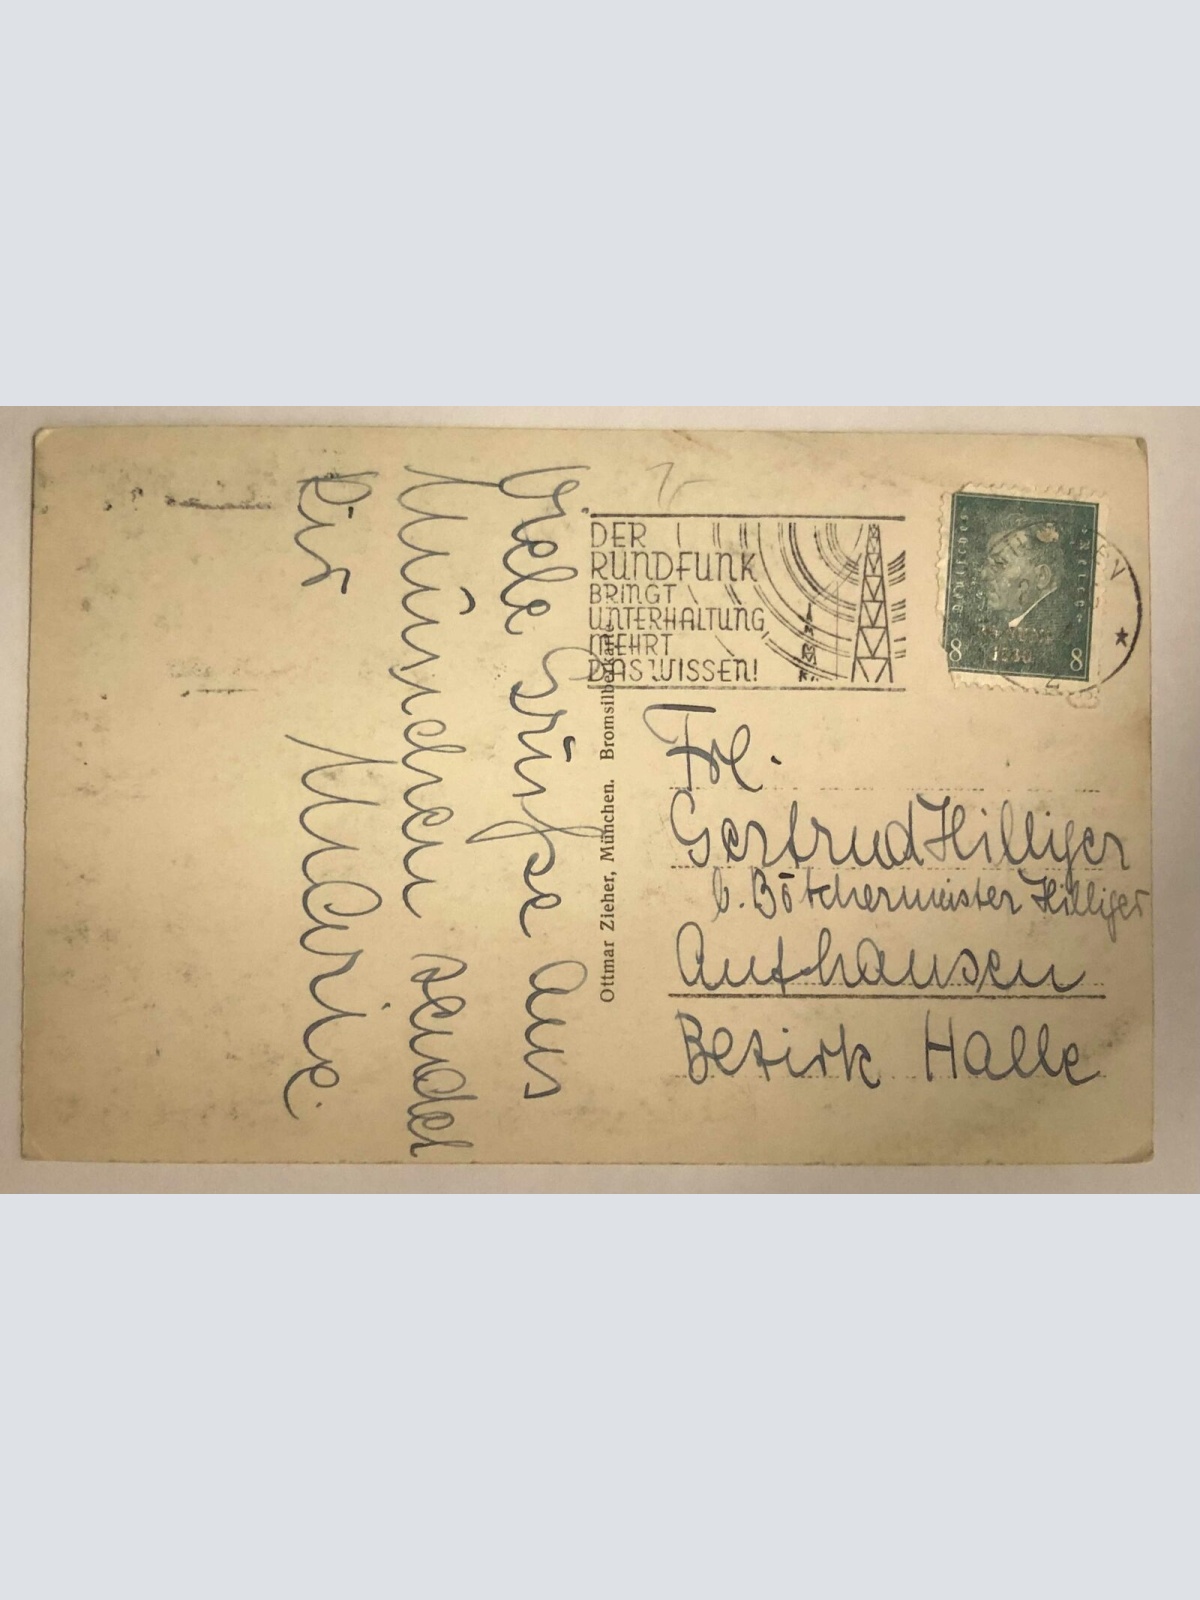 Viele Grüße aus
München sendet
Dir
Marie.
Ottmar Zieher, München. Bromsilberkarte.
DER
RUNDFUNK
BRINGT
UNTERHALTUNG
MEHRT
DAS WISSEN!
Deutsches Reich
8 8
1930
Frl.
Gertrud Hilliger
b. Böttchermeister Hilliger
Authausen
Bezirk Halle